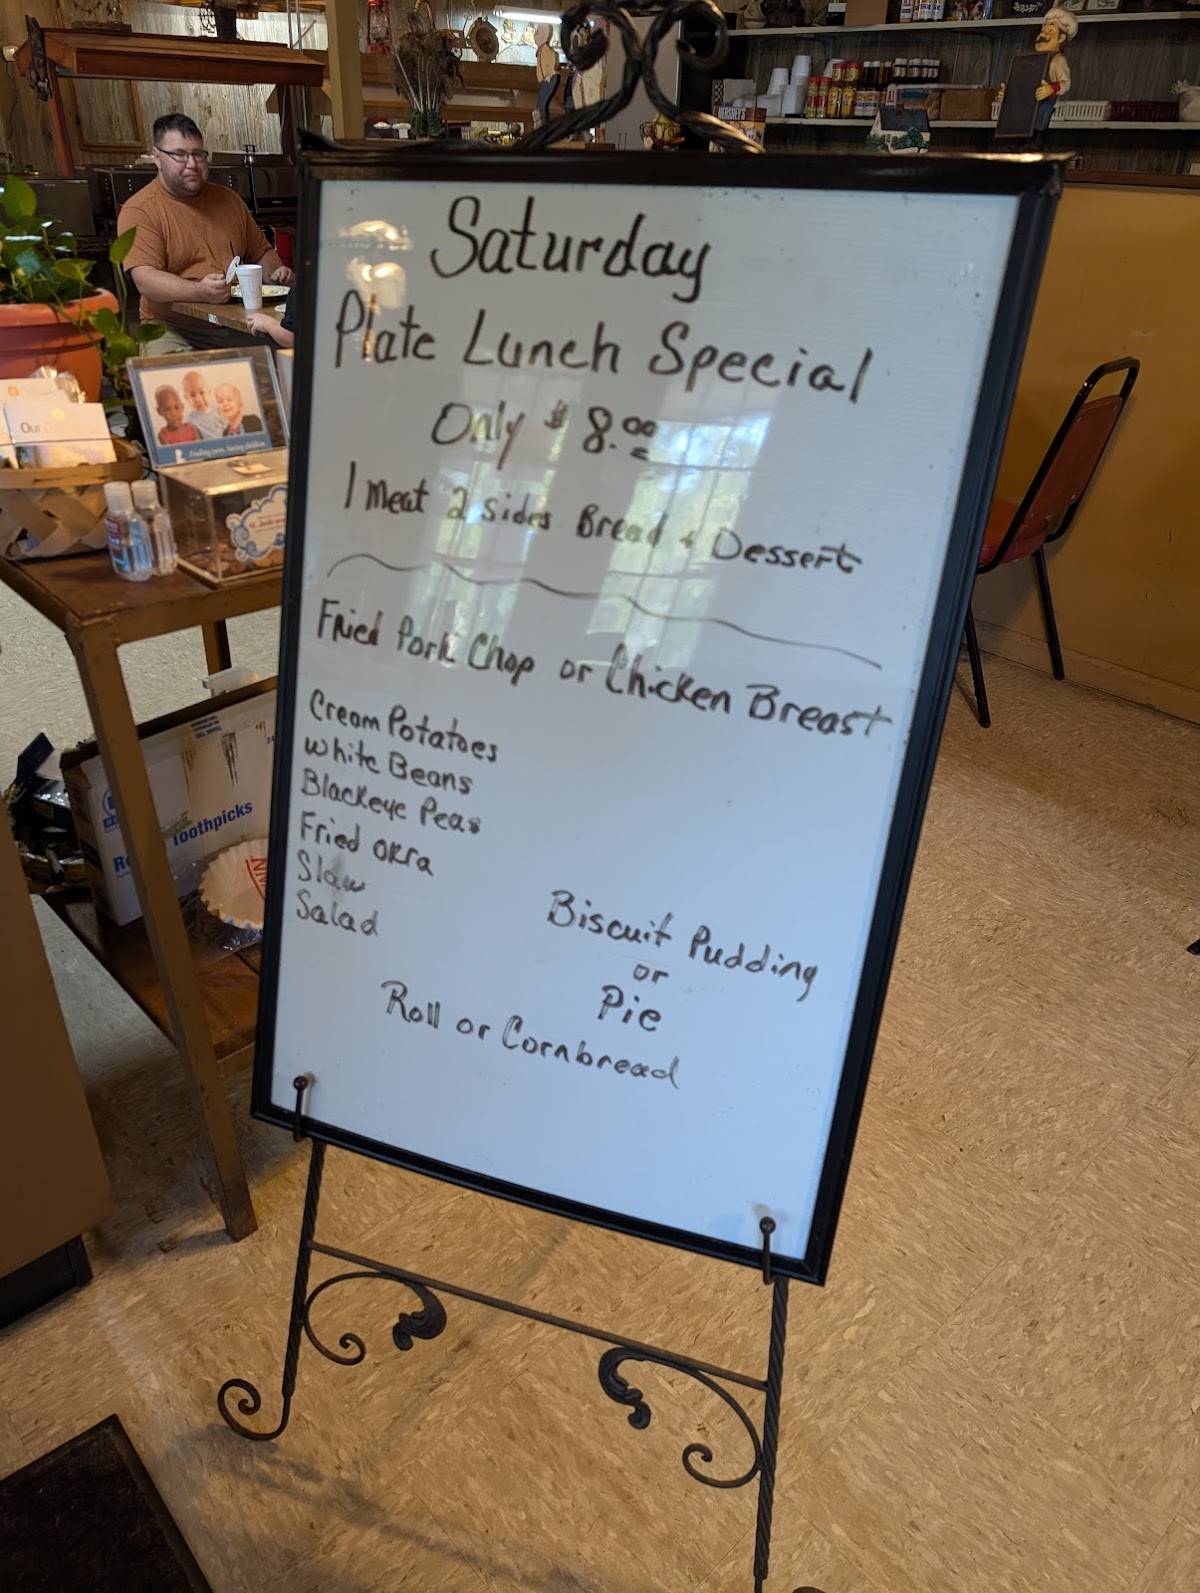 Saturday
Plate Lunch Special
Only $8.00
1 meat 2 sides Bread & Dessert
Fried Pork Chop or Chicken Breast
Cream Potatoes
White Beans
Blackeye Peas
Fried okra
Slaw
Salad
Biscuit Pudding
or
Pie
Roll or Cornbread
Finding cures. Saving children.
St. Jude
Our
Toothpicks
HERSHEY'S